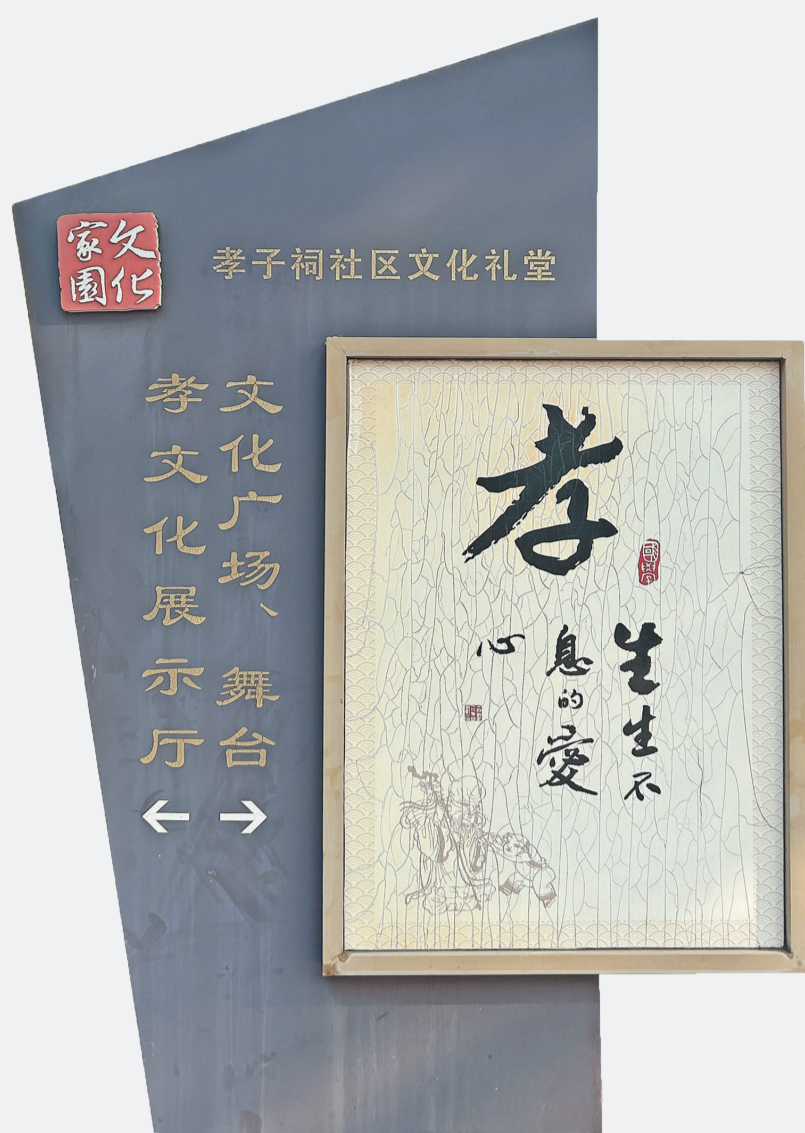 文化
家園
孝子祠社区文化礼堂
文化广场、舞台
孝文化展示厅
孝
國學
生生不
息的愛
心